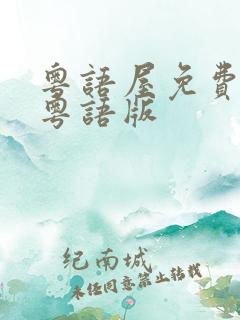 粵語屋免費
粵語版
纪南城
未经同意禁止转载